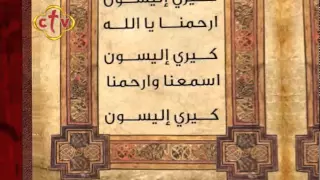 كيري إليسون
ارحمنا يا الله
كيري إليسون
اسمعنا وارحمنا
كيري إليسون
ctv